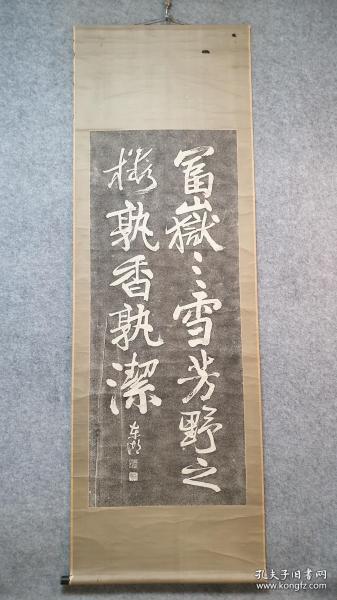 富嶽之雪芳野之
桜孰香孰潔
东湖
孔夫子旧书网
www.kongfz.com